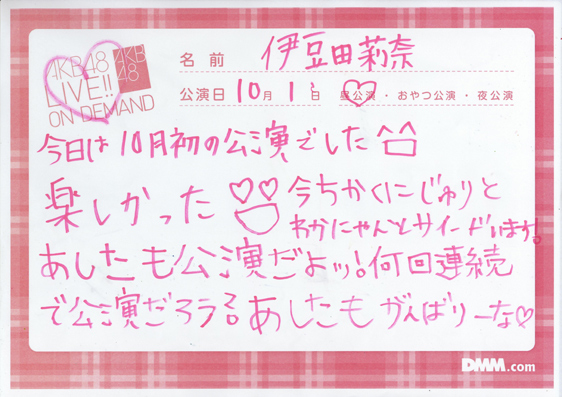 AKB48
LIVE!!
ON DEMAND
AKB
48
名前 伊豆田莉奈
公演日 10月 1日 昼公演・おやつ公演・夜公演
今日は10月初の公演でした
楽しかった 今ちかくにじゅりと
わかにゃんとサイードいます。
あしたも公演だよッ!何回連続
で公演だろう? あしたもがんばりーな♡
DMM.com